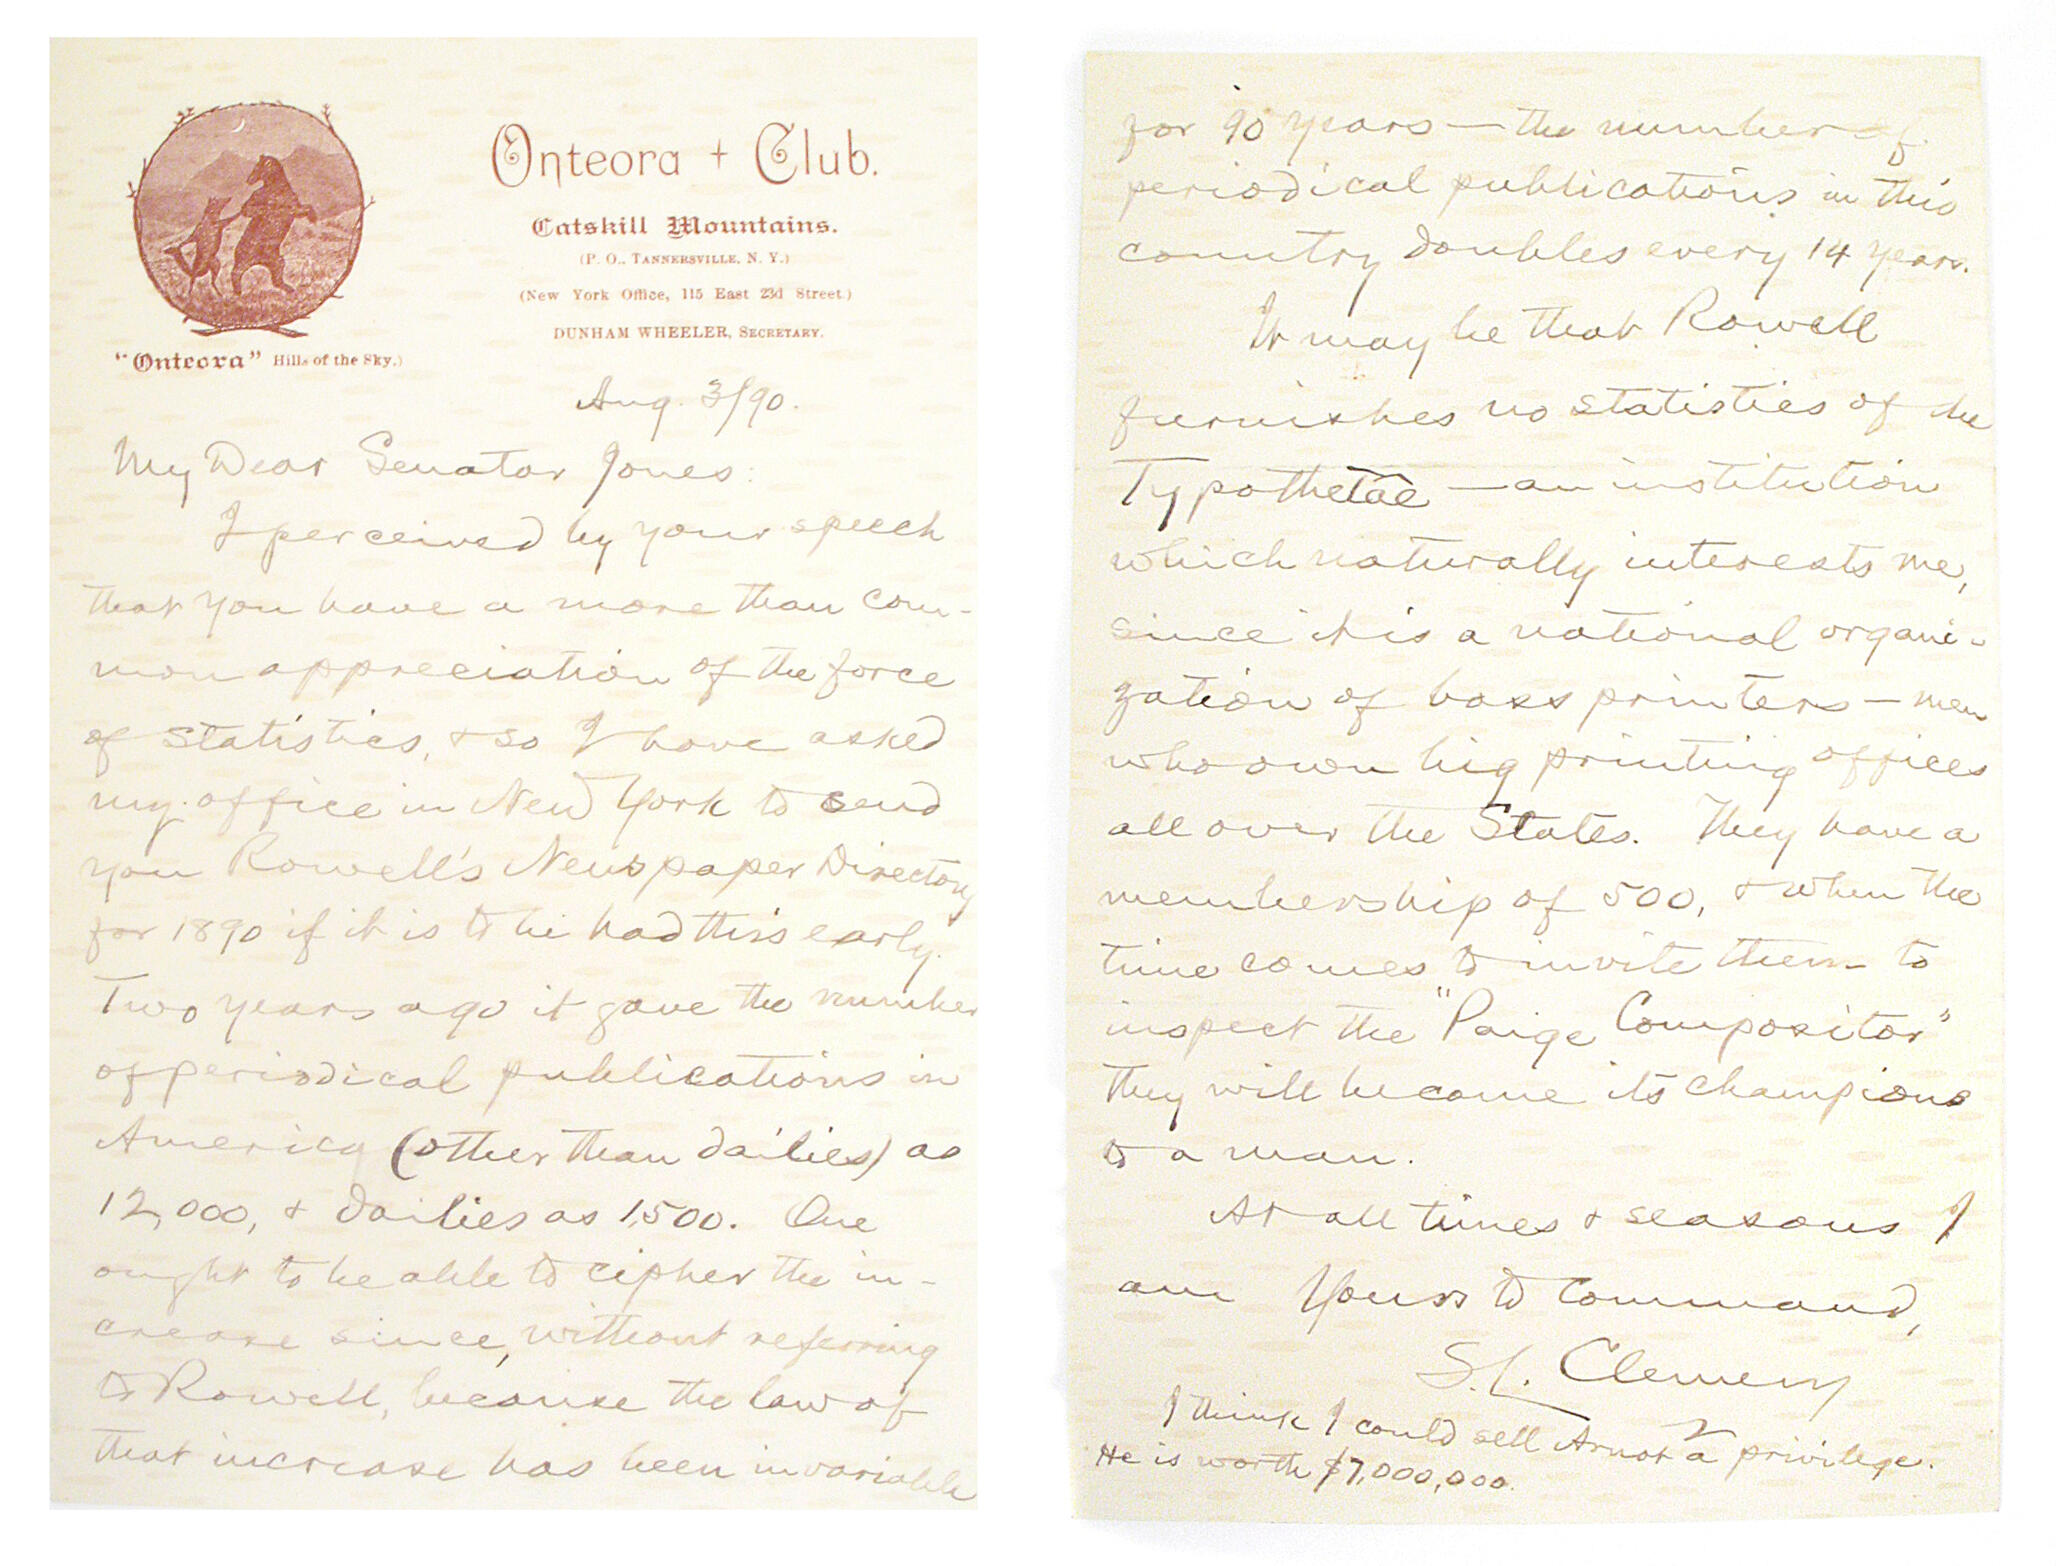 Onteora + Club.
Catskill Mountains.
(P. O., TANNERSVILLE, N. Y.)
(New York Office, 115 East 23d Street.)
DUNHAM WHEELER, SECRETARY.
"Onteora" Hills of the Sky.)
Aug. 3/90.
My Dear Senator Jones:
I perceived by your speech
that you have a more than com-
mon appreciation of the force
of statistics, & so I have asked
my office in New York to send
you Rowell's Newspaper Directory
for 1890 if it is to be had this early.
Two years ago it gave the number
of periodical publications in
America (other than dailies) as
12,000, & dailies as 1,500. One
ought to be able to cipher the in-
crease since, without referring
to Rowell, because the law of
that increase has been invariable
for 90 years — the number of
periodical publications in this
country doubles every 14 years.
It may be that Rowell
furnishes no statistics of the
Typothetae — an institution
which naturally interests me,
since it is a national organi-
zation of boss printers — men
who own big printing offices
all over the States. They have a
membership of 500, & when the
time comes to invite them to
inspect the "Paige Compositor"
they will become its champions
to a man.
At all times & seasons I
am Yours to command,
S. L. Clemens
I think I could sell Arnot a privilege.
He is worth $7,000,000.